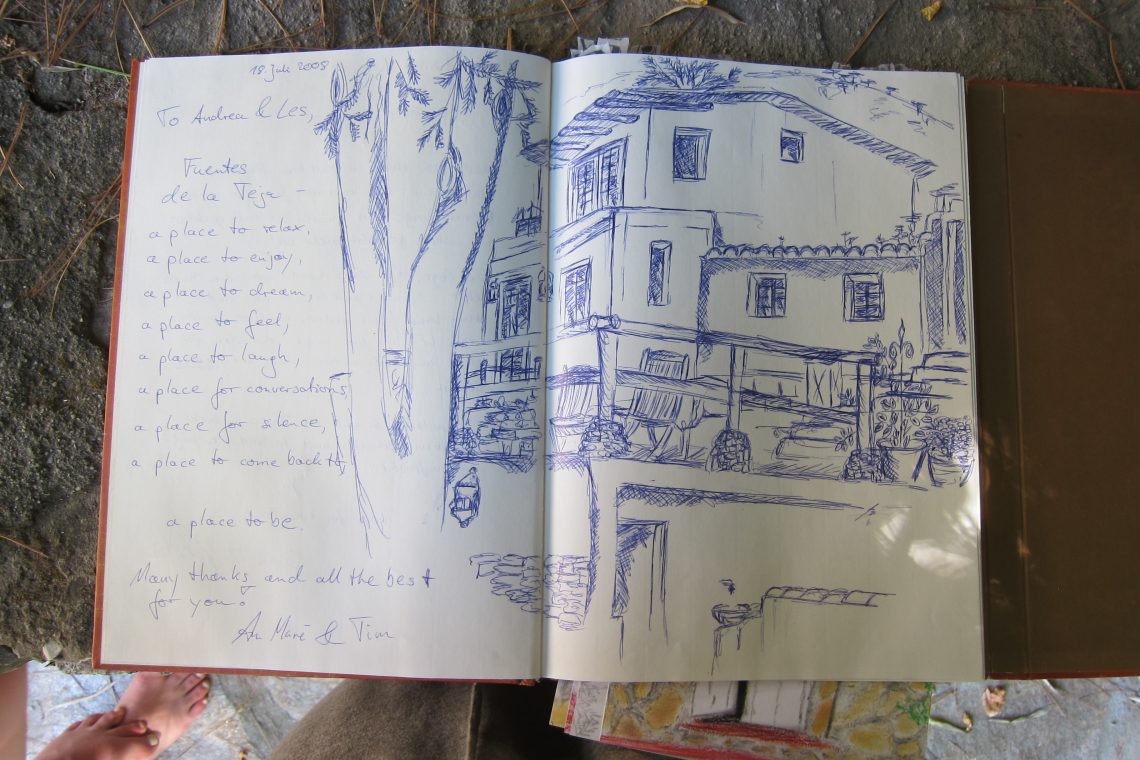 18. Juli 2008
To Andrea & Les,
Fuentes
de la Teja –
a place to relax,
a place to enjoy,
a place to dream,
a place to feel,
a place to laugh,
a place for conversations,
a place for silence,
a place to come back to,
a place to be.
Many thanks and all the best
for you!
& Tim